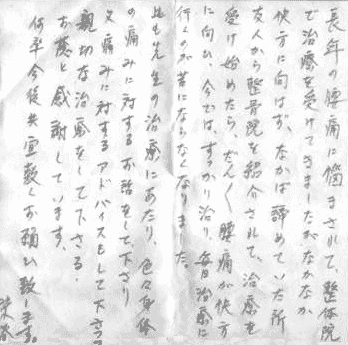 長年の腰痛に悩まされて、整体院
で治療を受けてきましたが、なかなか
快方に向はず、なかば諦めていた所
友人から整骨院を紹介されて、治療を
受け始めたら、だんく腰痛が快方
に向ひ、今では、すっかり治り、毎日治療に
行くのが苦にならなくなりました。
先生の治療にあたり、色々身体
の痛みに対するお話をして下さり
又痛みに対するアドバイスもして下さる
親切な治療をして下さる。
お蔭と感謝しています。
何卒今後共宜敷くお願ひ致します。